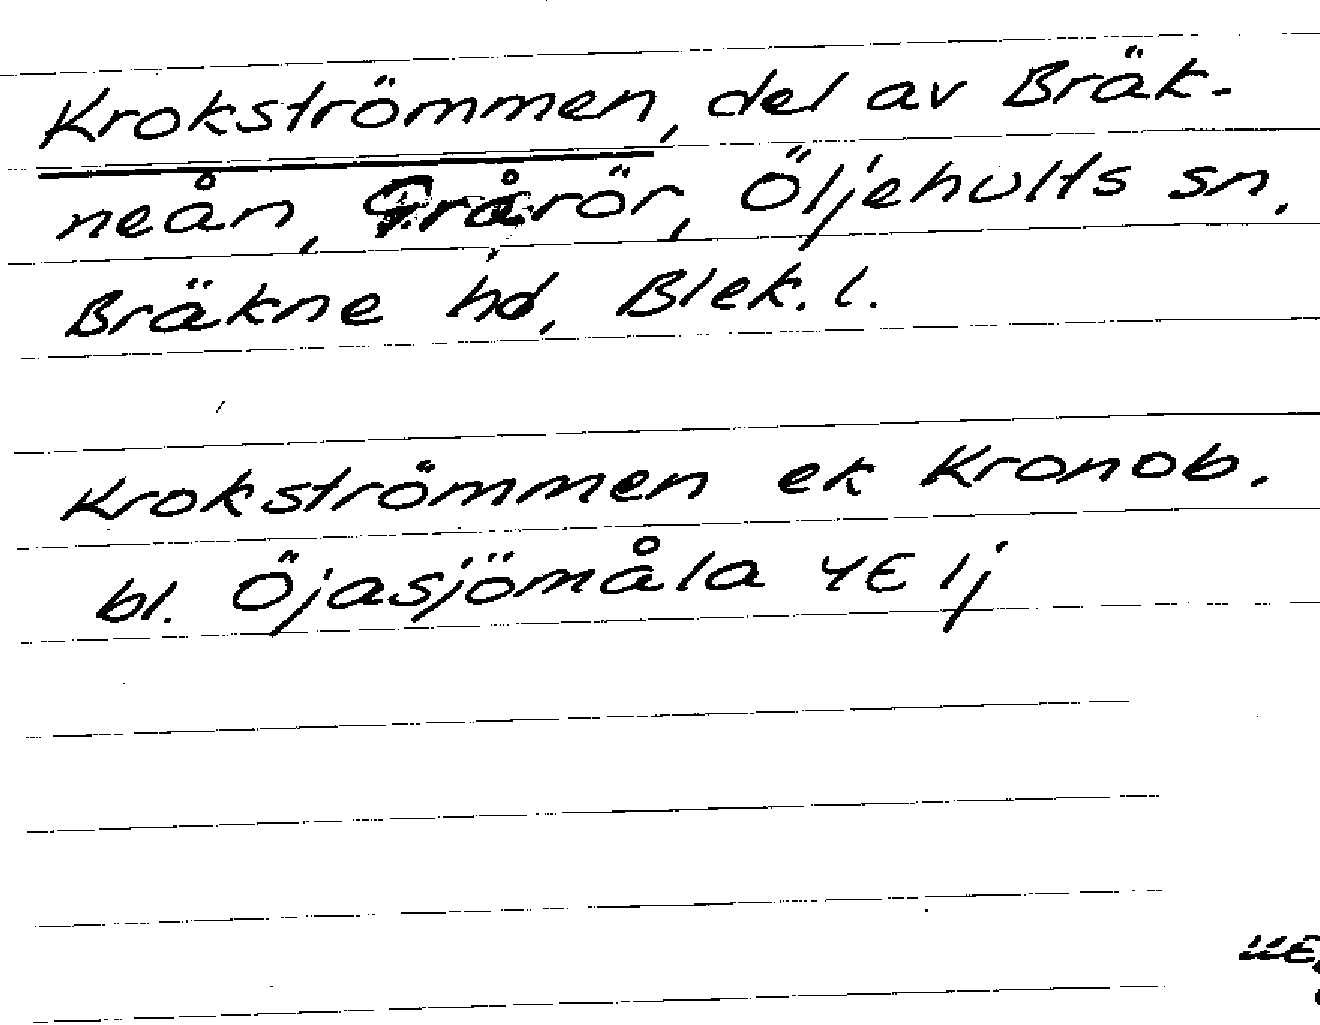 Krokströmmen, del av Bräk-
neån, Grårör, Öljehults sn,
Bräkne hd, Blek. l.
Krokströmmen ek Kronob.
bl. Öjasjömåla 4E 1j